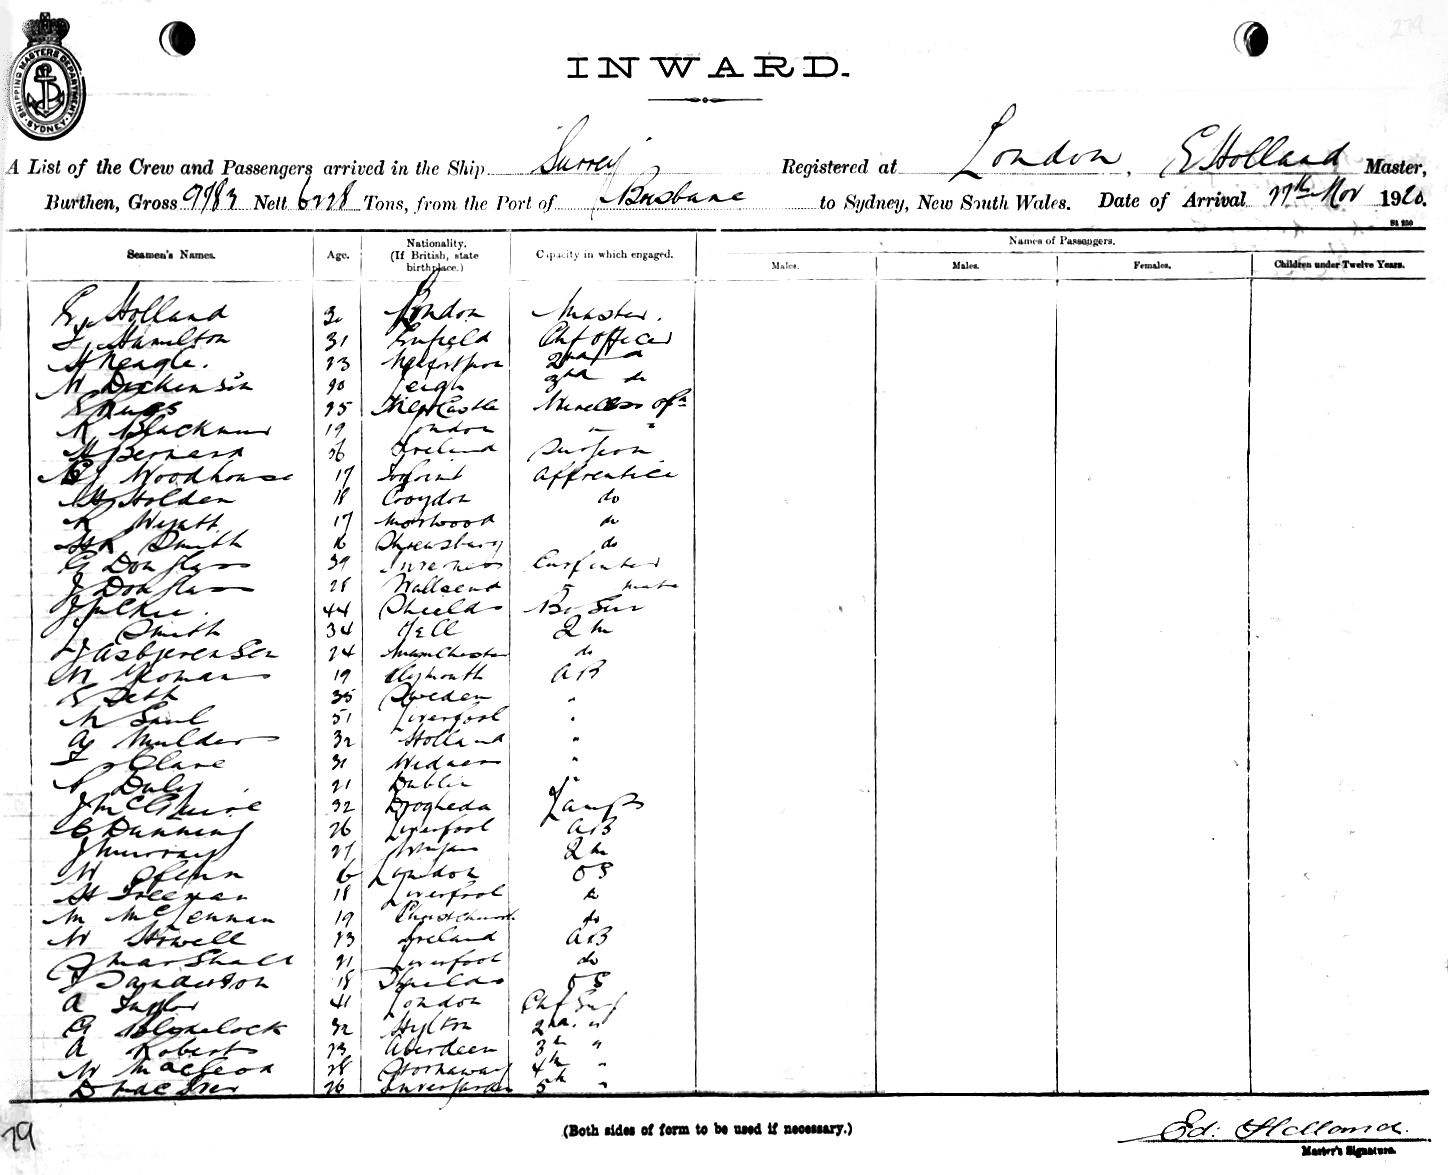 279
INWARD.
SHIPPING MASTERS DEPARTMENT SYDNEY
A List of the Crew and Passengers arrived in the Ship "Surrey" Registered at London, E Holland Master,
Burthen, Gross Nett Tons, from the Port of Brisbane to Sydney, New South Wales. Date of Arrival 27th Nov 1920.
Seamen's Names. Age. Nationality. (If British, state birthplace.) Capacity in which engaged. Names of Passengers.
Males. Males. Females. Children under Twelve Years.
E Holland London Master.
Hamilton 31 Enfield Chf officer
H Neagle. 23 2nd do
W Dickenson 20 Leigh 3rd do
25 NewCastle Wireless opr
R Blackmur 19 London " "
H Bernard 26 Ireland Surgeon
Woodhouse 17 apprentice
H Holden 18 Croydon do
R Wyatt 17 Norwood do
HR Smith 16 Shrewsbury do
G Douglass 39 Inverness Carpenter
J Douglass 28 Wallsend " mate
J 44 Shields Bo Sun
J Smith 34 Yell 2 m
J Asbjorensen 24 Manchester do
W Yeomans 19 Plymouth AB
35 Sweden "
Saul 51 Liverpool "
Mulder 32 Holland "
Clare 31 Widnes "
Daly 21 Dublin "
J McClure 32 Drogheda Lamps
C Dunning 26 Liverpool AB
J Murray 27 Wigan 2 m
W Glenn 16 London OS
H Freeman 18 Liverpool do
M McLennan 19 Christchurch do
W Stowell 23 Ireland AB
J Marshall 21 Liverpool do
J Sanderson 18 Shields OS
A Taylor 41 London Chf Eng
G Blymelock 32 Hylton 2nd "
A Roberts 23 Aberdeen 3rd "
W Macleod 28 Stornaway 4th "
D MacIver 26 Invergordon 5th "
(Both sides of form to be used if necessary.)
Ed: Holland.
Master's Signature.
29